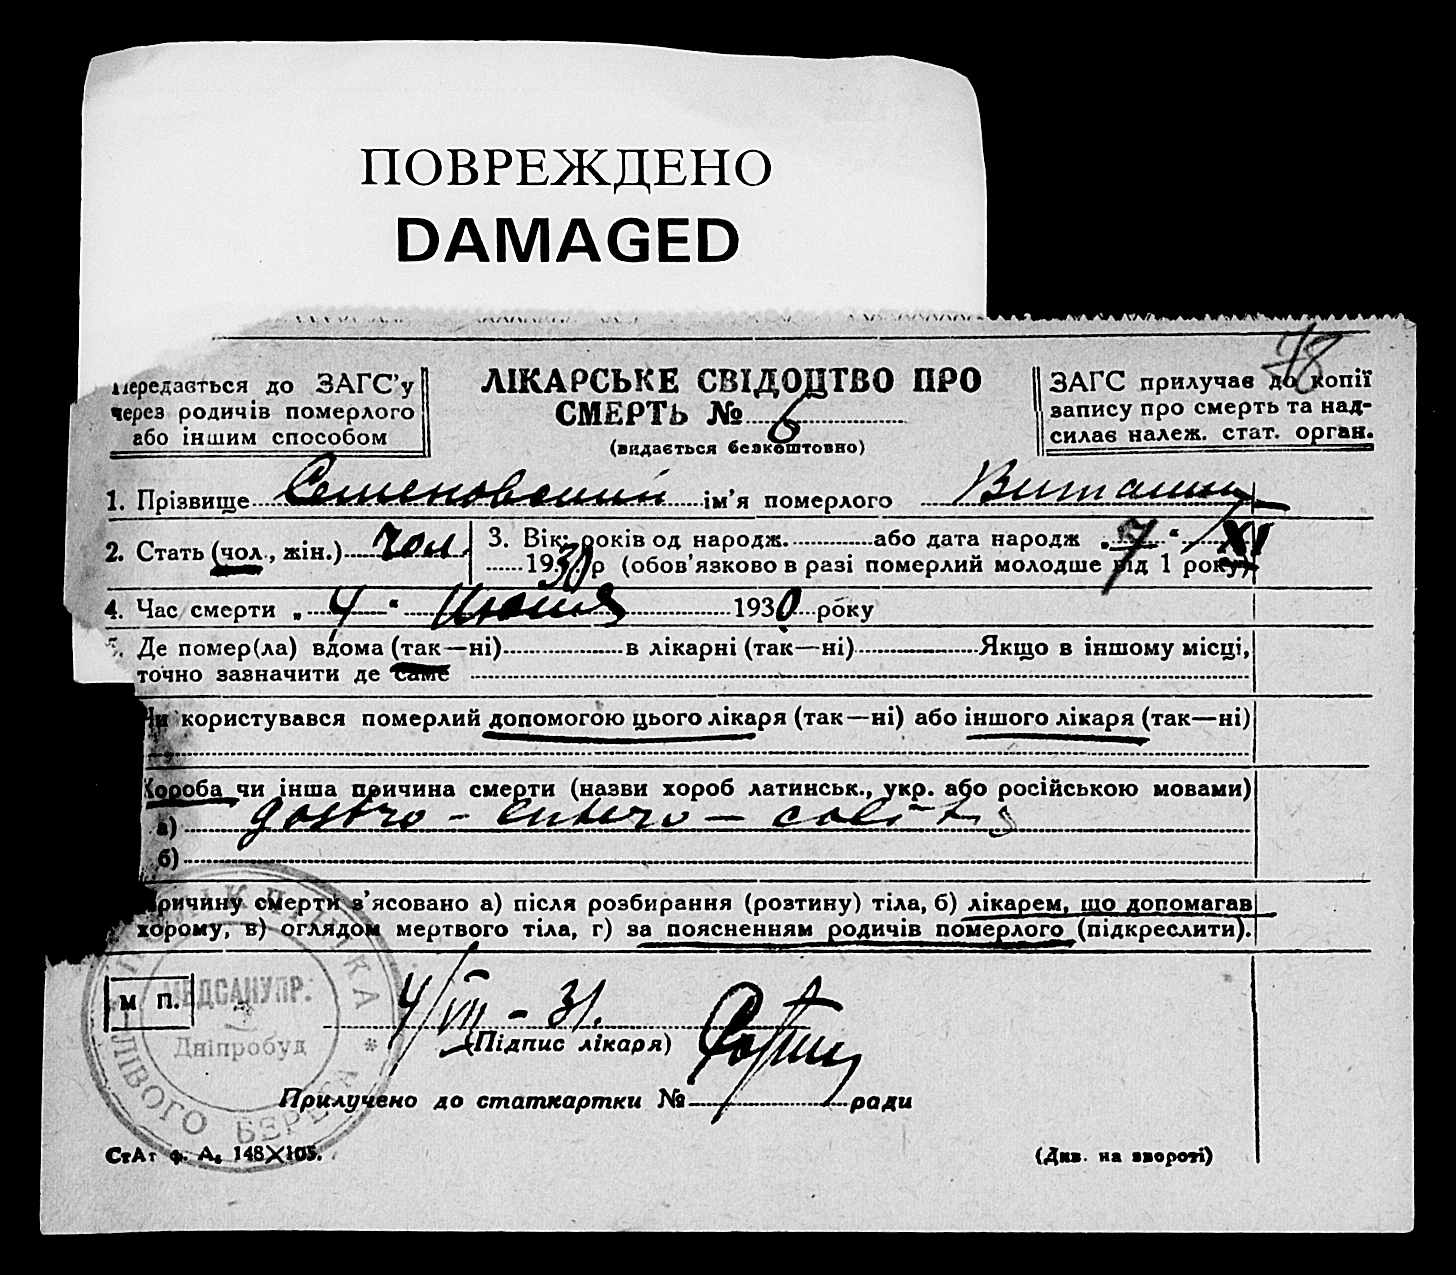 ПОВРЕЖДЕНО
DAMAGED
78
Передається до ЗАГС'у
через родичів померлого
або іншим способом
ЛІКАРСЬКЕ СВІДОЦТВО ПРО
СМЕРТЬ № 6
(видається безкоштовно)
ЗАГС прилучає до копії
запису про смерть та над-
силає належ. стат. орган.
1. Прізвище Семеновский ім'я померлого Виталий
2. Стать (чол., жін.) чол.
3. Вік: років од народж. або дата народж „7" XI
1930 р (обов'язково в разі померлий молодше від 1 року)
4. Час смерти „4" Июля 1930 року
5. Де помер(ла) вдома (так—ні) в лікарні (так—ні) Якщо в іншому місці,
точно зазначити де саме
Чи користувався померлий допомогою цього лікаря (так—ні) або іншого лікаря (так—ні)
Хороба чи інша причина смерти (назви хороб латинськ., укр. або російською мовами)
а) gastro - entero - colitis
б)
Причину смерти з'ясовано а) після розбирання (розтину) тіла, б) лікарем, що допомагав
хорому, в) оглядом мертвого тіла, г) за поясненням родичів померлого (підкреслити).
М П.
МЕДСАНУПР.
Дніпробуд
ЛІВОГО БЕРЕГА
4/VII - 31.
(Підпис лікаря)
Прилучено до статкартки № ради
СтАт ф. А, 148X105.
(Див. на звороті)